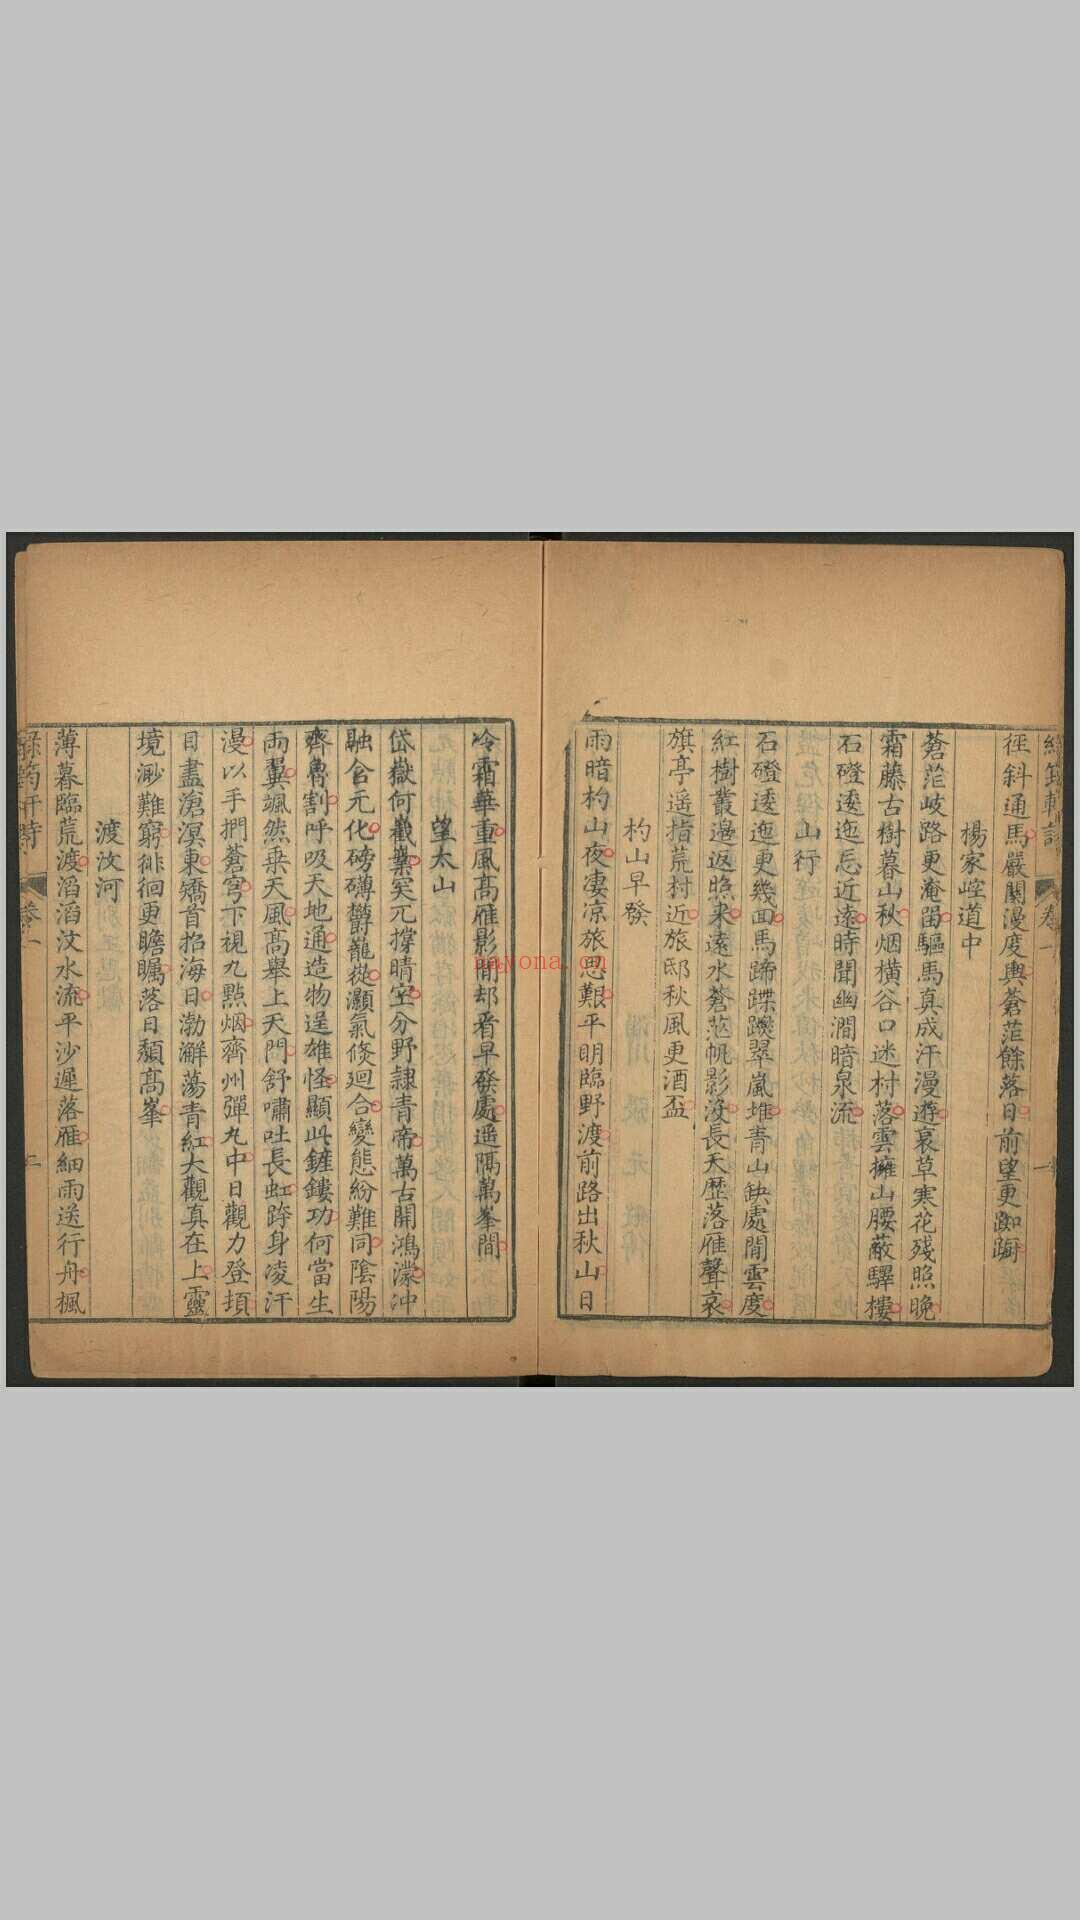 卷一
徑斜通馬嚴關漫度輿蒼茫餘落日前望更踟蹰
楊家崆道中
蒼茫岐路更淹留驅馬真成汗漫遊衰草寒花殘照晚
霜藤古樹暮山秋烟橫谷口迷村落雲擁山腰蔽驛樓
石磴逶迤忘近遠時聞幽澗暗泉流
山行
石磴逶迤更幾回馬蹄蹀躞翠嵐堆青山缺處閒雲度
紅樹叢邊返照來遠水蒼茫帆影沒長天歷落雁聲哀
旗亭遥指荒村近旅邸秋風更酒盃
杓山早發
雨暗杓山夜凄凉旅思艱平明臨野渡前路出秋山日
冷霜華重風髙雁影閒却看早發處遥隔萬峯間
望太山
岱嶽何嶻嶪突兀撐晴空分野隸青帝萬古開鴻濛沖
融含元化磅礴鬱巃嵸灝氣倏廻合變態紛難同陰陽
齊魯割呼吸天地通造物逞雄怪顯此鏟鏤功何當生
兩翼颯然乘天風髙舉上天門舒嘯吐長虹跨身凌汗
漫以手捫蒼穹下視九點烟齊州彈丸中日觀力登頂
目盡滄溟東矯首招海日渤澥蕩青紅大觀真在上靈
境渺難窮徘徊更瞻矚落日頹髙峯
渡汶河
薄暮臨荒渡滔滔汶水流平沙遲落雁細雨送行舟楓
卷一
nayona.cn